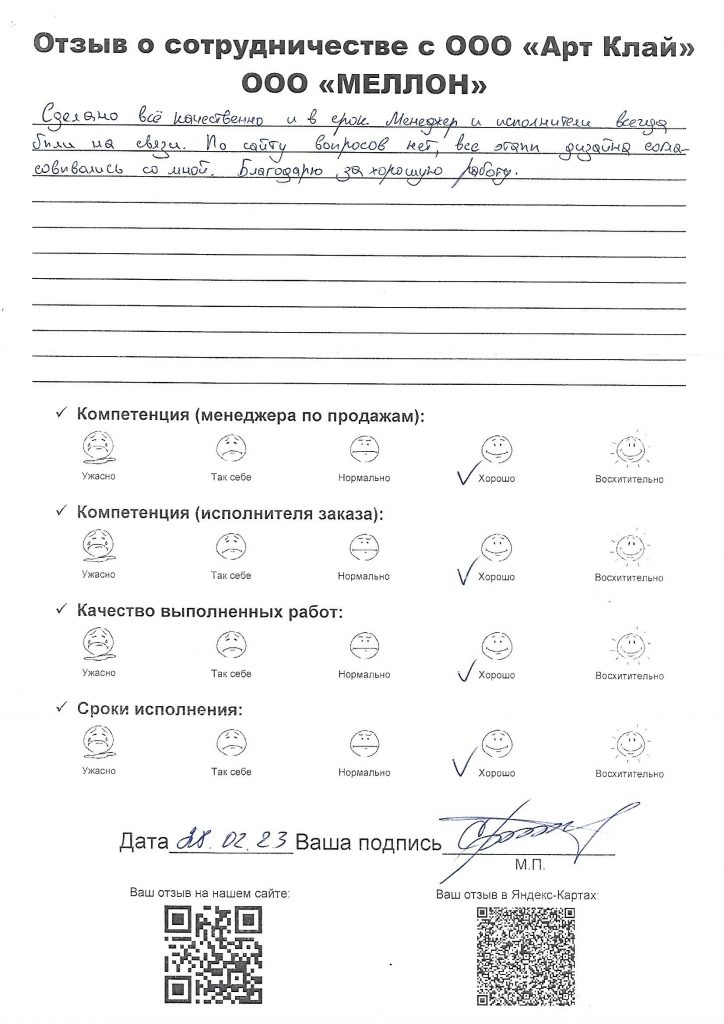 Отзыв о сотрудничестве с ООО «Арт Клай»
ООО «МЕЛЛОН»
Сделано всё качественно и в срок. Менеджер и исполнители всегда
были на связи. По сайту вопросов нет, все этапы дизайна согла-
совывались со мной. Благодарю за хорошую работу.
✓ Компетенция (менеджера по продажам):
Ужасно Так себе Нормально ✓ Хорошо Восхитительно
✓ Компетенция (исполнителя заказа):
Ужасно Так себе Нормально ✓ Хорошо Восхитительно
✓ Качество выполненных работ:
Ужасно Так себе Нормально ✓ Хорошо Восхитительно
✓ Сроки исполнения:
Ужасно Так себе Нормально ✓ Хорошо Восхитительно
Дата 28.02.23 Ваша подпись
М.П.
Ваш отзыв на нашем сайте: Ваш отзыв в Яндекс-Картах: